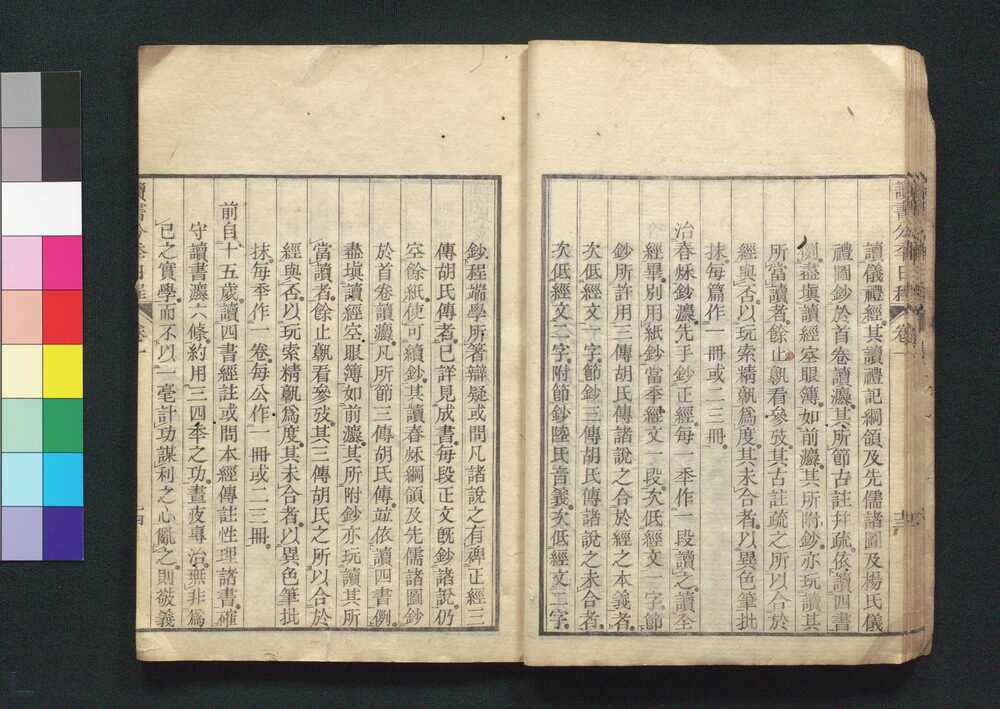 讀儀禮經其讀禮記綱領及先儒諸圖及楊氏儀
禮圖鈔於首卷讀灋其所節古註幷疏依讀四書
例盡塡讀經空眼簿如前灋其所附鈔亦玩讀其
所當讀者餘止孰看參攷其古註疏之所以合於
經與否以玩索精孰爲度其未合者以異色筆批
抹每篇作一冊或二三冊
治春秌鈔灋先手鈔正經每一季作一段讀之讀全
經畢別用紙鈔當季經文一段次低經文一字節
鈔所許用三傳胡氏傳諸說之合於經之本義者
次低經文一字節鈔三傳胡氏傳諸說之未合者
次低經文二字附節鈔陸氏音義次低經文二字
讀書分季日程
卷一
十三
鈔程端學所著辯疑或問凡諸說之有碑正經三
傳胡氏傳者已詳見成書每段正文旣鈔諸說仍
空餘紙使可續鈔其讀春秌綱領及先儒諸圖鈔
於首卷讀灋凡所節三傳胡氏傳竝依讀四書例
盡塡讀經空眼簿如前灋其所附鈔亦玩讀其所
當讀者餘止孰看參攷其三傳胡氏之所以合於
經與否以玩索精孰爲度其未合者以異色筆批
抹每季作一卷每公作一冊或二三冊
前自十五歲讀四書經註或問本經傳註性理諸書確
守讀書灋六條約用三四季之功晝夜專治無非爲
己之實學而不以一毫計功謀利之心亂之則敬義
讀書分季日程
卷一